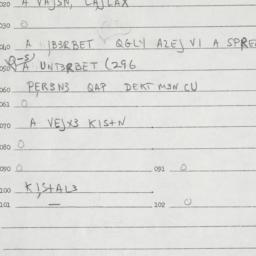 020 A VAJSN, LAJLAX
030 O
040 A JB3RBET QGLY AZEJ VI A SPRE
050 A UNT3RBET (296
060 PER3N3 QAP DEKT M3N CU
061 O
070 A VEJX3 KIS+N
080 O
090 O 091 O
100 KIS+AL3
101 — 102 O